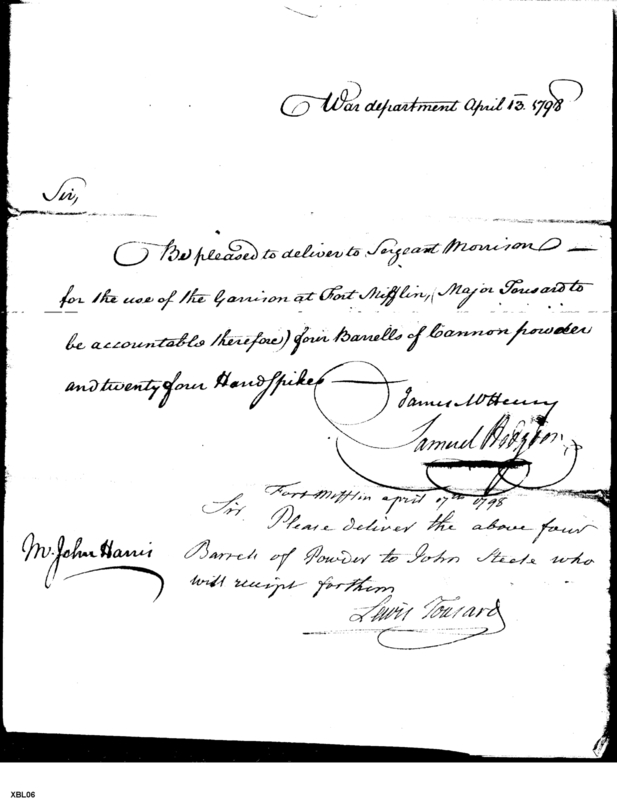 War department April 13. 1798
Sir,
Be pleased to deliver to Sergeant Morrison
for the use of the Garrison at Fort Mifflin, (Major Tousard to
be accountable therefore) four Barrells of Cannon powder
and twenty four Hand Spikes
James McHenry
Samuel Hodgdon
Fort Mifflin april 17th 1798
Sir
Please deliver the above four
Mr. John Harris
Barrels of Powder to John Steele who
will receipt for them
Lewis Tousard
XBL06